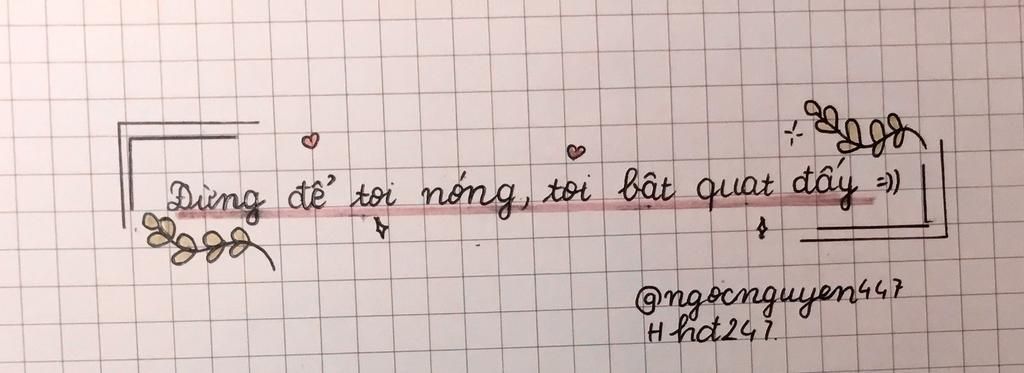 Đừng để tôi nóng, tôi bật quạt đấy =))
@ngocnguyen447
H hđ247.